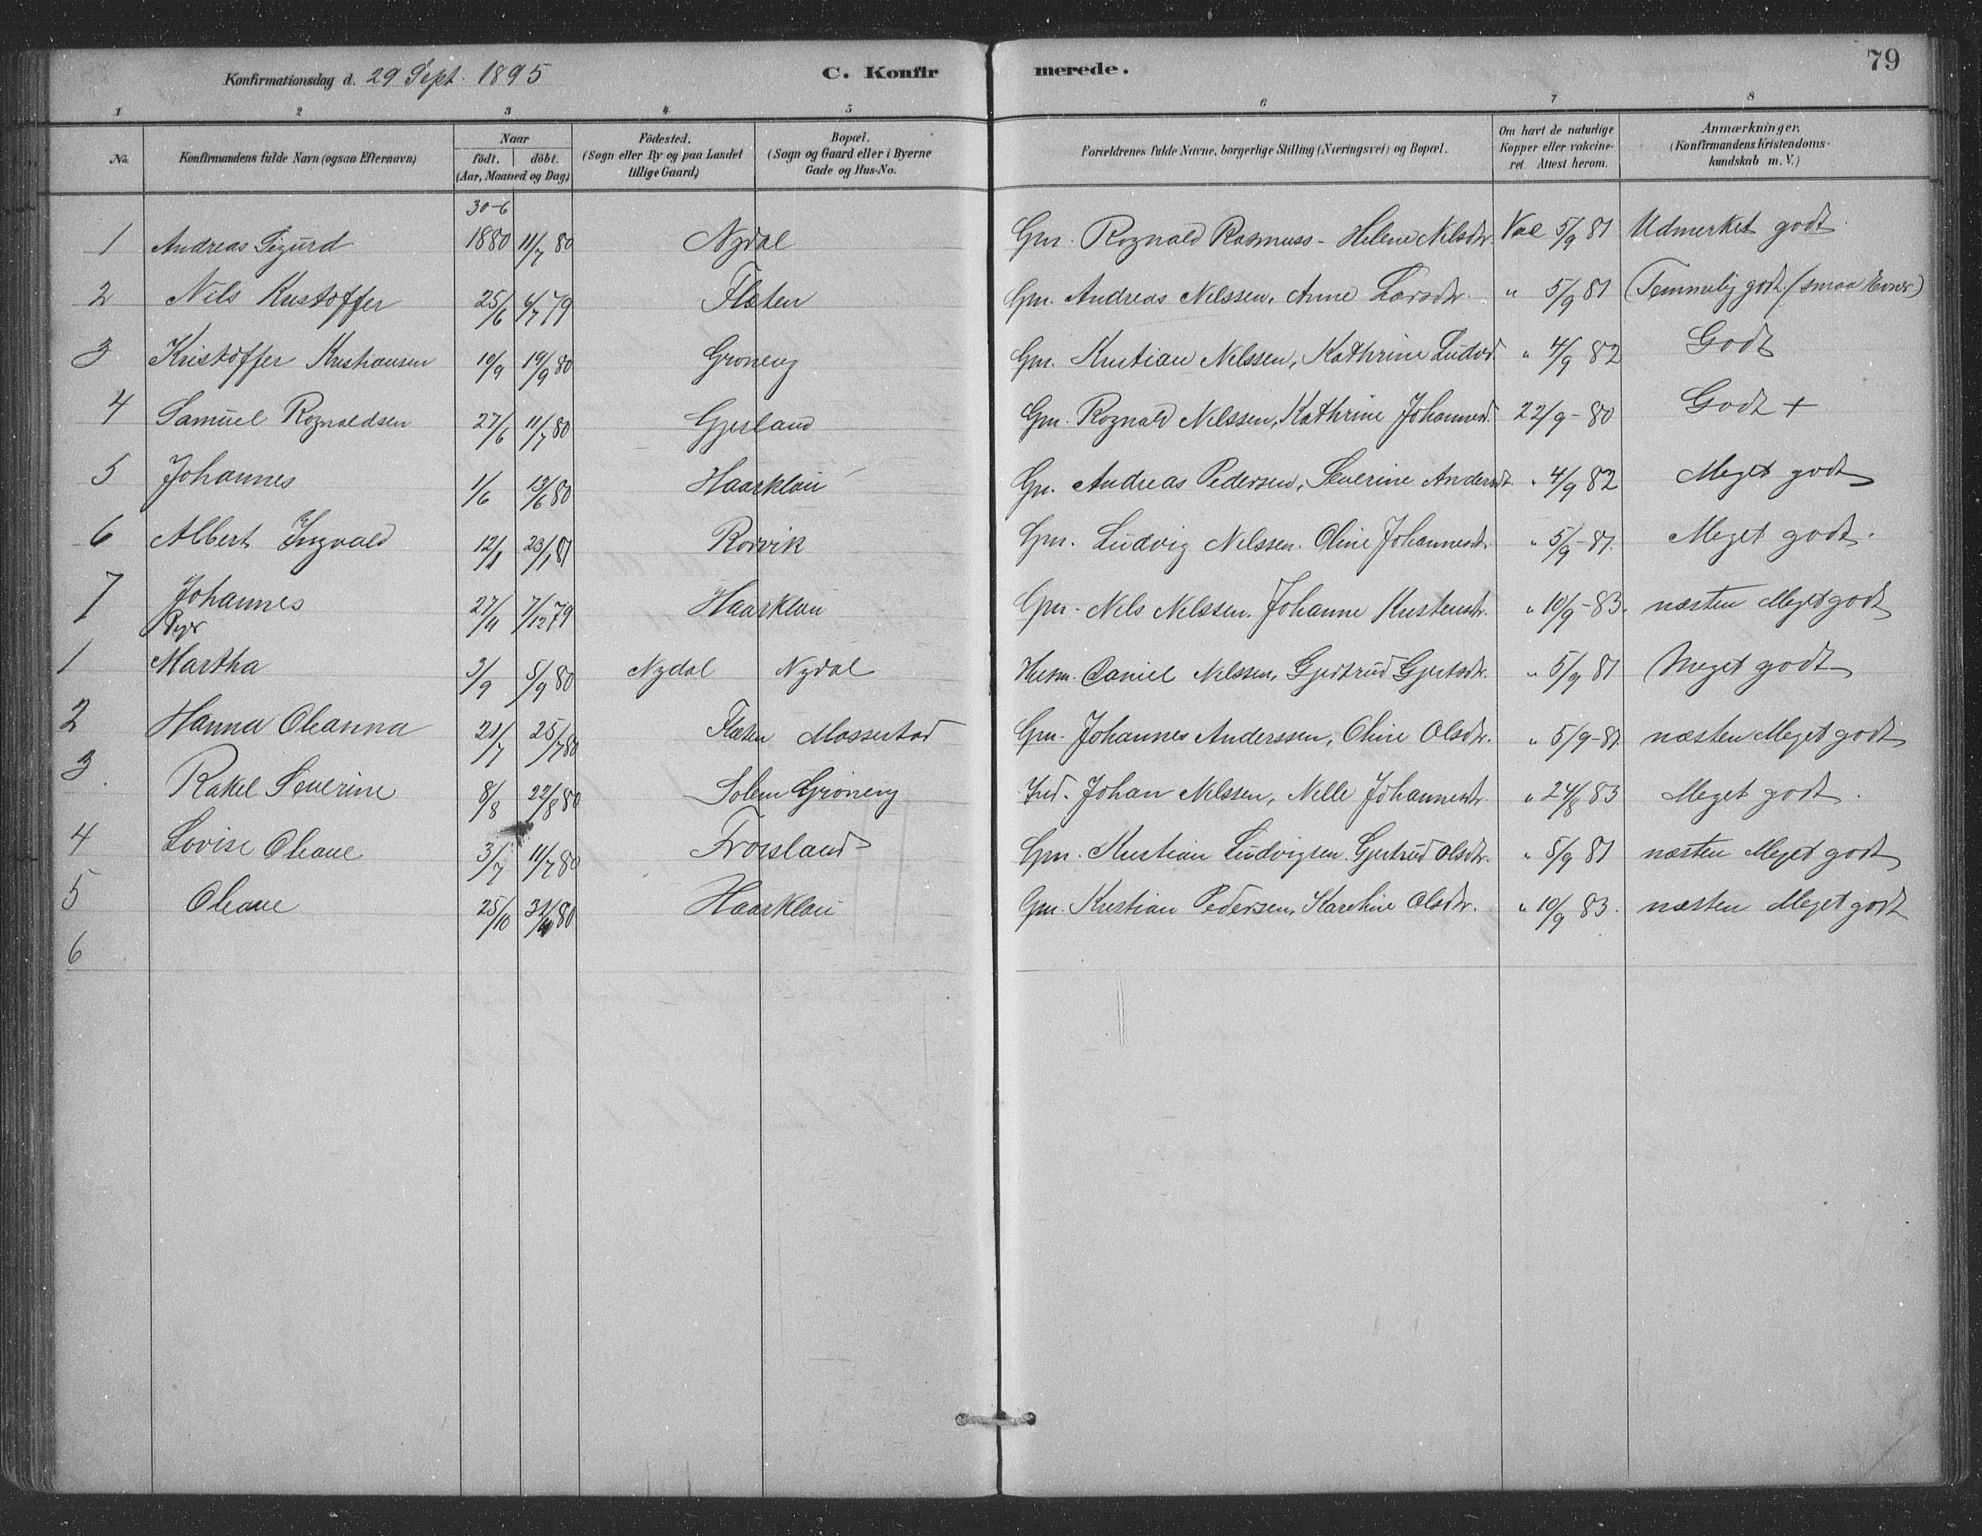 Konfirmationsdag d. 29 Sept. 1895 C. Konfirmerede. 79
1 2 3 4 5 6 7 8
No. Konfirmandens fulde Navn (ogsaa Efternavn) Naar födt. döbt. (Aar, Maaned og Dag) Födested. (Sogn eller By og paa Landet tillige Gaard) Bopæl. (Sogn og Gaard eller i Byerne Gade og Hus-No. Forældrenes fulde Navne, borgerlige Stilling (Næringsvei) og Bopæl. Om havt de naturlige Kopper eller vakcineret Attest herom. Anmærkninger. (Konfirmandens Kristendomskundskab m. V.)
1 Andreas Sigurd 30-6 1880 11/7 80 Nydal Gm. Rognald Rasmuss- Helene Nilsdtr. Vac 5/9 81 Udmerket godt
2 Nils Kristoffer 25/6 6/7 79 Flæten Gm. Andreas Nilssen, Anne Larsdtr. " 5/9 81 (Temmelig godt (smaa Evner)
3 Kristoffer Kristiansen 10/9 19/9 80 Gröneng Gm. Kristian Nilssen, Kathrine Ludvd " 4/9 82 Godt
4 Samuel Rognaldsen 27/6 11/7 80 Gjesland Gm. Rognald Nilssen, Kathrine Johannesd. 22/9-80 Godt +
5 Johannes 1/6 13/6 80 Haarklau Gm. Andreas Pedersen, Severine Andersdt " 4/9 82 Meget godt
6 Albert Ingvald 12/1 23/1 81 Rörvik Gm. Ludvig Nilssen. Oline Johannesdt. " 5/9-81. Meget godt.
7 Johannes 27/11 7/12 79 Haarklau Gm. Nils Nilssen. Johanne Kristensdtr. " 10/9-83. næsten Meget godt
Piger
1 Martha 3/9 5/9 80 Nydal Nydal Husm. Daniel Nilssen, Gjertrud Gjertsdtr. " 5/9 81 Meget godt
2 Hanna Oleanna 21/7 25/7 80 Flæten Mossestad Gm. Johannes Anderssen, Oline Olsdtr. " 5/9-81. næsten Meget godt
3. Rakel Severine 8/8 22/8 80 Solem Gröneng Ind. Johan Nilssen, Nille Johannesdtr. " 24/8 83 Meget godt.
4 Lovise Oleane 3/7 11/7 80 Fröisland Gm. Kristian Ludvigsen Gjertrud Olsdtr. " 5/9 81 næsten Meget godt
5 Oleane 25/10 31/10 80 Haarklau Gm. Kristian Pedersen, Kareline Olsdtr. " 10/9 83. næsten Meget godt
6